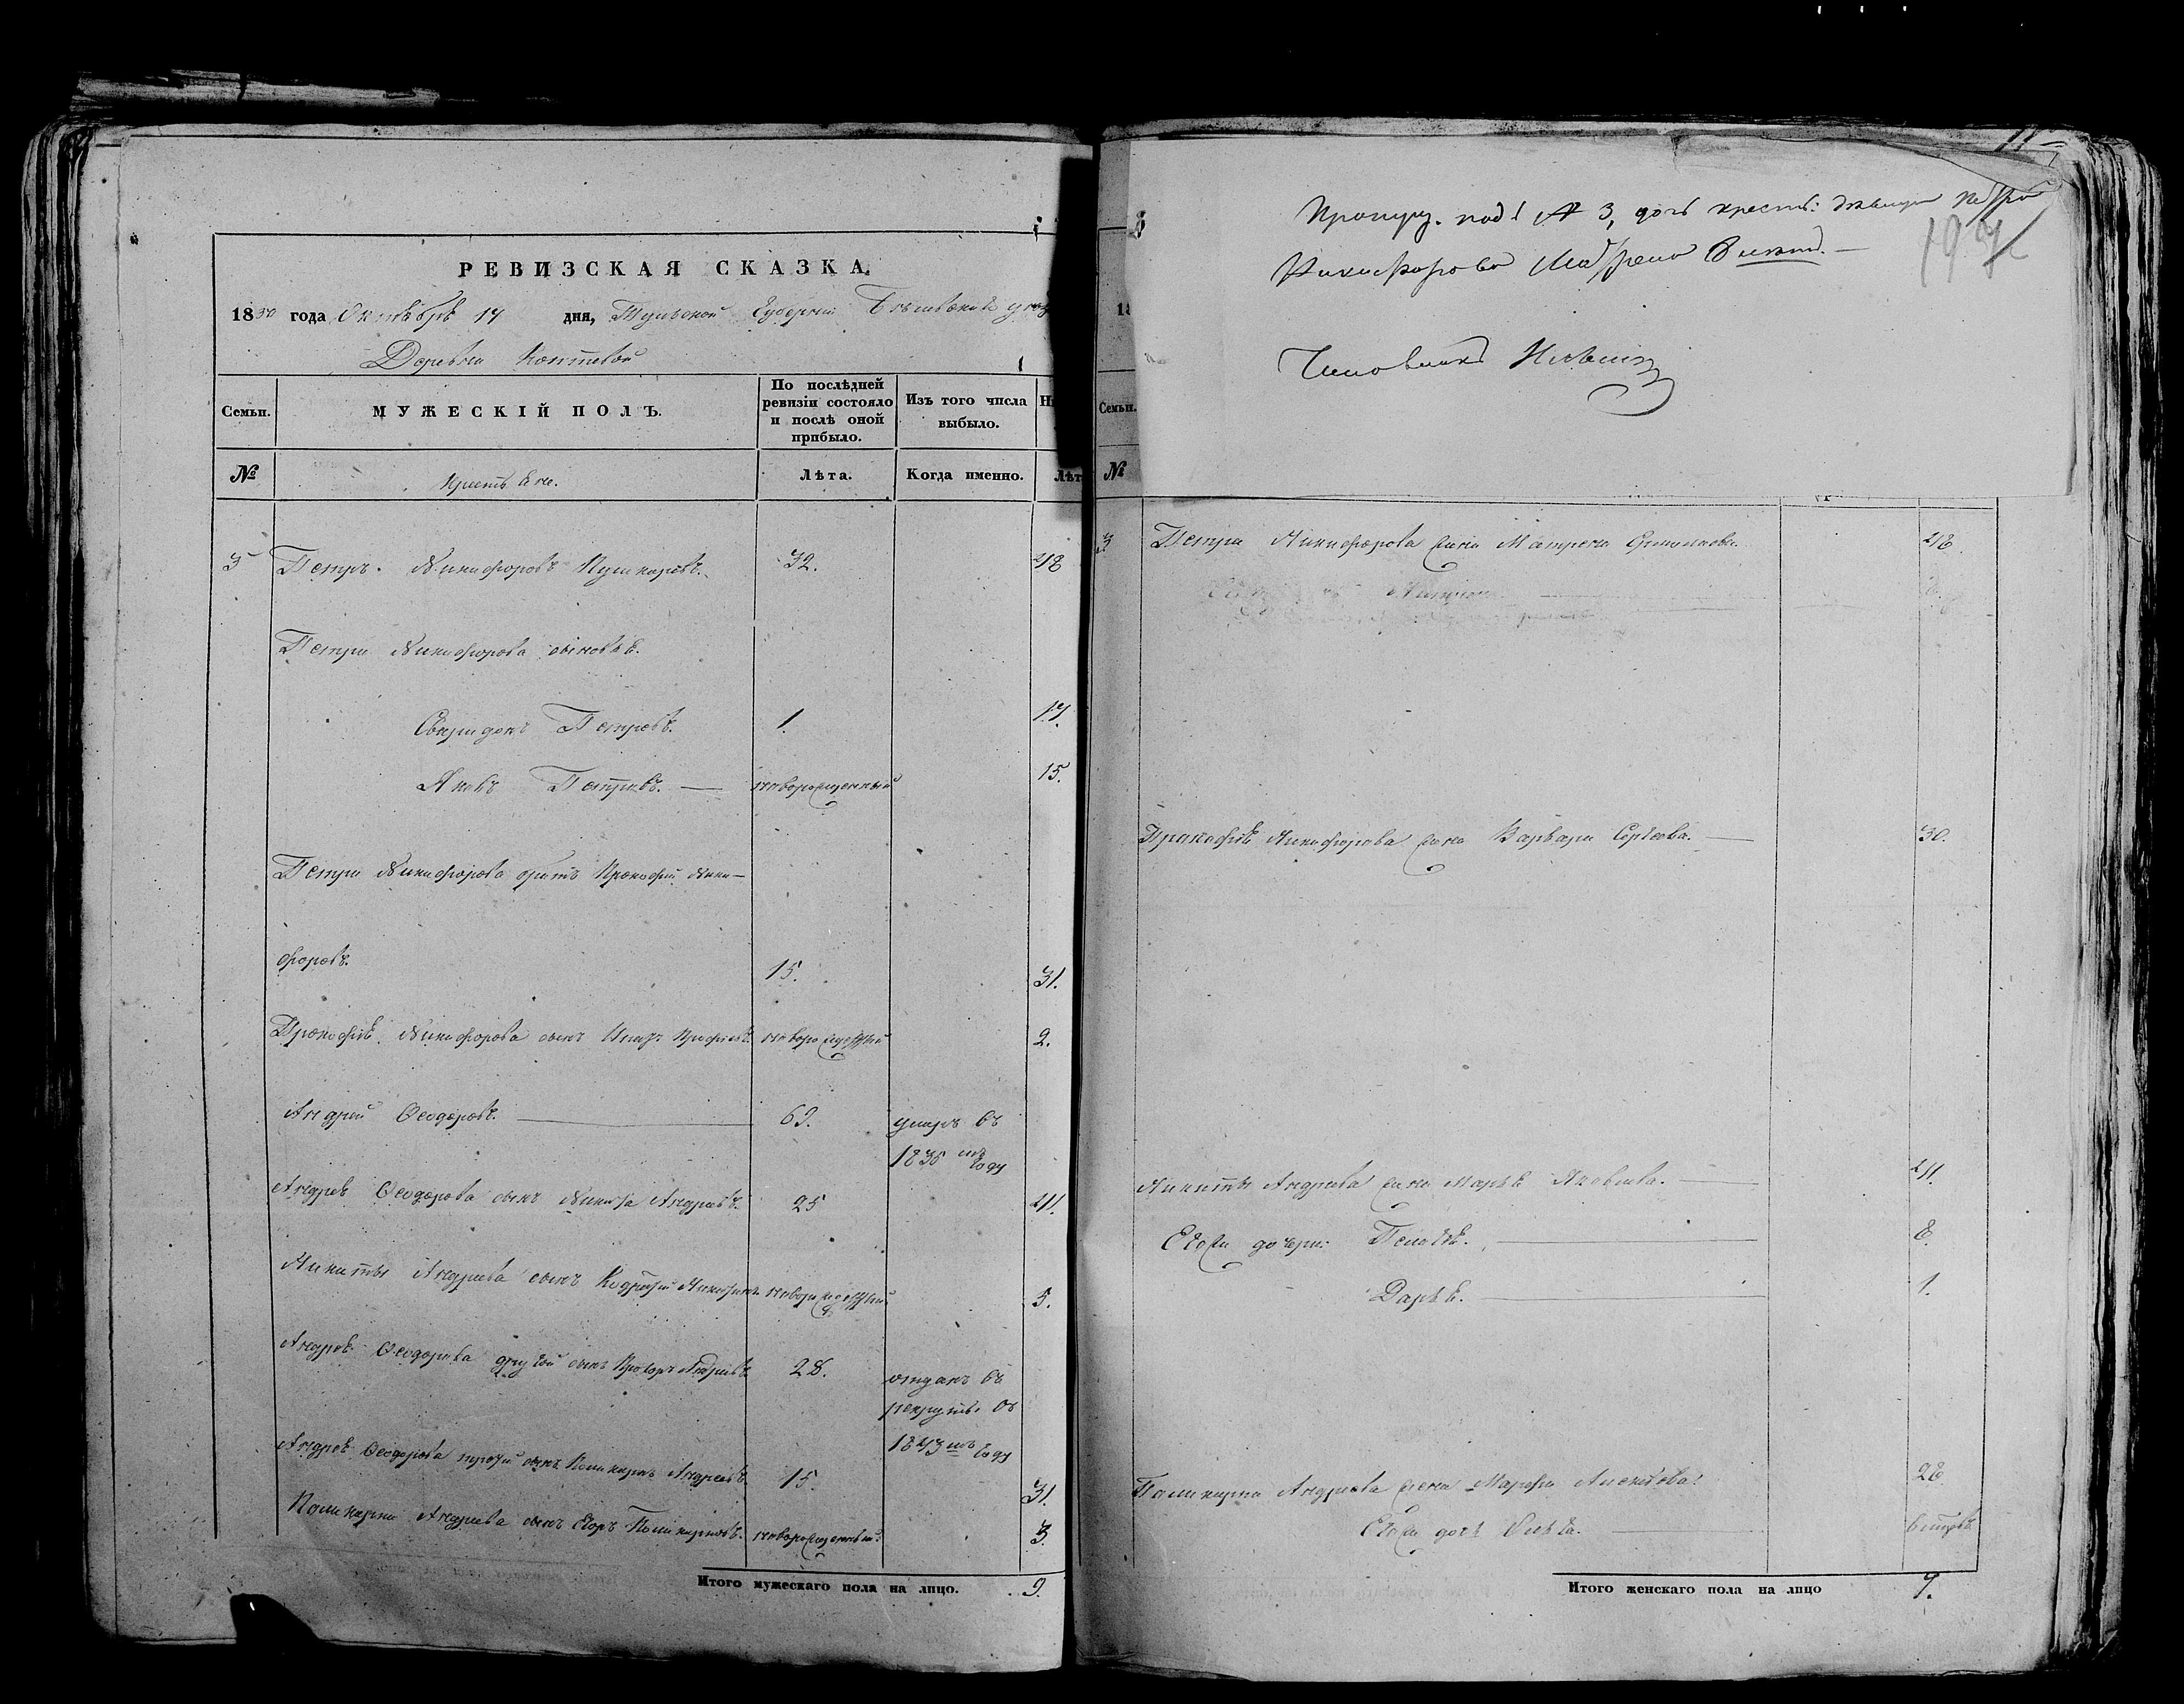 РЕВИЗСКАЯ СКАЗКА.
1850 года Октября 14 дня, Тульской Губернии Бѣлевскаго уѣз
Деревни Коптевой
Семьи.
МУЖЕСКІЙ ПОЛЪ.
По послѣдней ревизіи состояло и послѣ оной прибыло.
Изъ того числа выбыло.
№
Крестьяне.
Лѣта.
Когда именно.
Лѣт
3 Петръ Никифоровъ Пушкаревъ. 32. 48
Петра Никифорова сыновья.
Свиридонъ Петровъ. 1. 17.
Яковъ Петровъ. — новорожденный 15.
Петра Никифорова братъ Прокофий Ники-
форовъ. 15. 31.
Прокофія Никифорова сынъ новорожденный 2.
Андрей Ѳеодоровъ. 69. умеръ въ
1835 мъ году
Андрея Ѳеодорова сынъ Никита Андреевъ. 25 41.
Никиты Андреева сынъ Кодратій Никитинъ новорожденный 5.
Андрея Ѳеодорова другой сынъ Андреевъ 28. отданъ въ
рекруты въ
1843 мъ году
Андрея Ѳеодорова третій сынъ Поликарпъ Андреевъ. 15. 31.
Поликарпа Андреева сынъ Егоръ Поликарповъ. новорожденный 3.
Итого мужескаго пола на лицо. 9.
под № 3, дочь крест: девица Петра
Никифорова Матрена
Чиновникъ
Семьи.
№
3 Петра Никифорова жена Матрена 48.
Прокофія Никифорова жена Варвара Сергѣева. — 30.
Никиты Андреева жена Марья Яковлева. — 41.
Его же дочери: Пелагѣя. 8.
Дарья. 1.
Поликарпа Андреева жена Марфа Алексѣева. 28
Его же дочь
Итого женскаго пола на лицо 7.